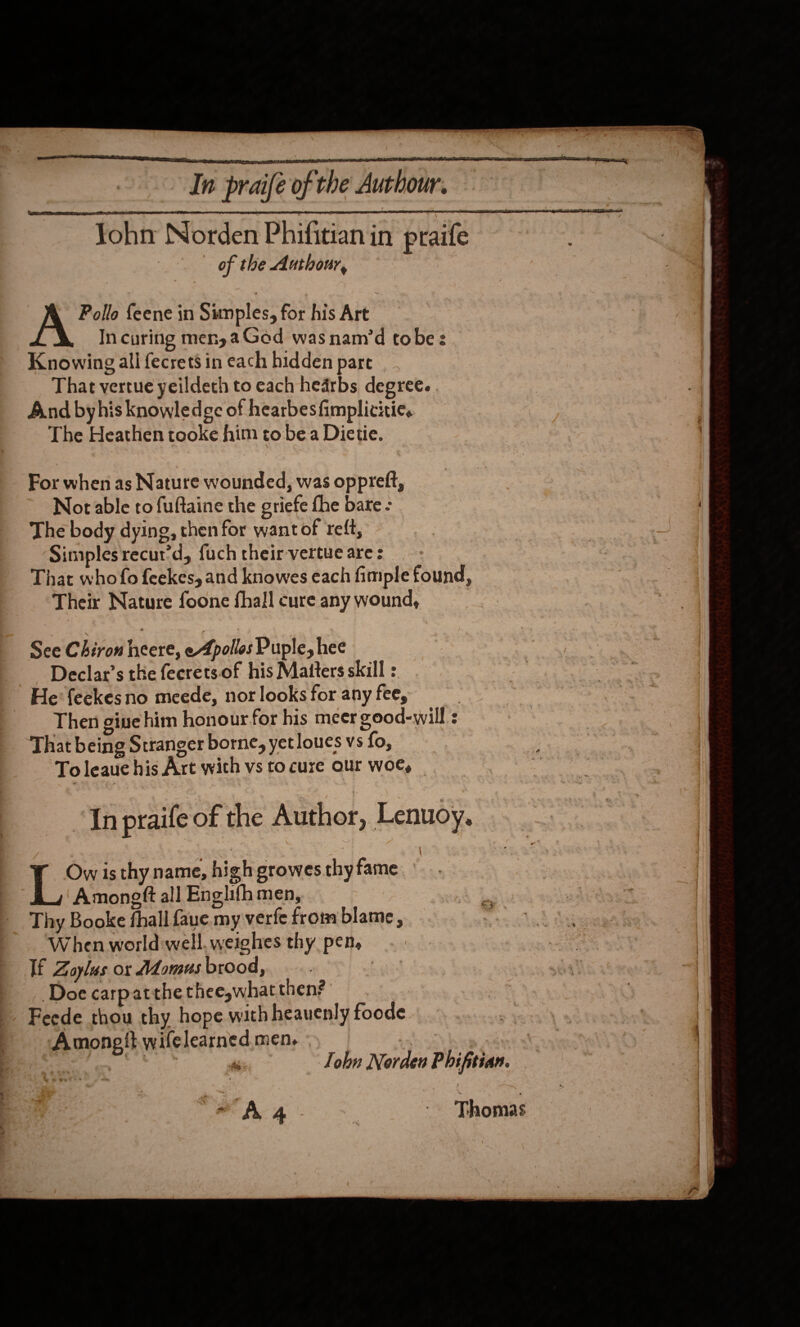 In praiſe of the Authour.
Iohn Norden Phiſitian in praiſe
of the Authour.
APollo ſeene in Simples, for his Art
In curing men, a God was nam'd to be:
Knowing all ſecrets in each hidden part
That vertue yeildeth to each hearbs degree.
And by his knowledge of hearbes ſimplicitie.
The Heathen tooke him to be a Dietie.
For when as Nature wounded, was oppreſt,
Not able to ſuſtaine the griefe ſhe bare:
The body dying, then for want of reſt,
Simples recur'd, ſuch their vertue are:
That who ſo ſeekes, and knowes each ſimple found,
Their Nature ſoone ſhall cure any wound.
See Chiron heere, Apollos Puple, hee
Declar's the ſecrets of his Maiſters skill:
He ſeekes no meede, nor looks for any fee,
Then giue him honour for his meer good-will:
That being Stranger borne, yet loues vs ſo,
To leaue his Art with vs to cure our woe.
In praiſe of the Author, Lenuoy.
LOw is thy name, high growes thy fame
Amongſt all Engliſh men,
Thy Booke ſhall ſaue my verſe from blame,
When world well weighes thy pen.
If Zoylus or Momus brood,
Doe carp at the thee, what then?
Feede thou thy hope with heauenly foode
Amongſt wiſe learned men.
Iohn Norden Phiſitian.
A 4 Thomas